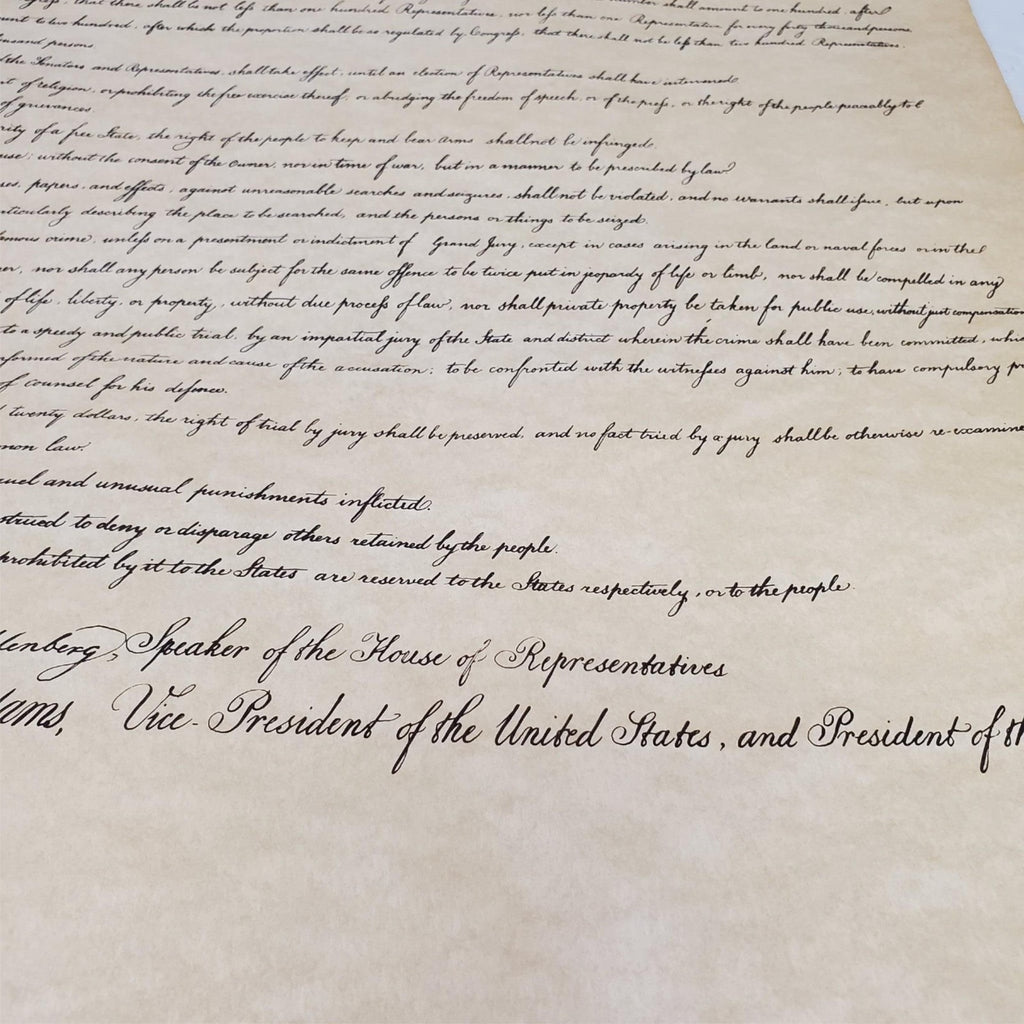 that there shall be not leſs than one hundred Representatives, nor leſs than one Representative for every forty thousand persons, shall amount to one hundred, after
unt to two hundred, after which the proportion shall be so regulated by Congreſs, that there shall not be leſs than two hundred Representatives,
ousand persons
the Senators and Representatives, shall take effect, until an election of Representatives shall have intervened
t of religion, or prohibiting the free exercise thereof, or abridging the freedom of speech, or of the preſs, or the right of the people peaceably to
of grievances
rity of a free State, the right of the people to keep and bear arms shall not be infringed,
use; without the consent of the Owner, nor in time of war, but in a manner to be prescribed by law
ses, papers, and effects, against unreasonable searches and seizures, shall not be violated, and no warrants shall iſsue, but upon
ticularly describing the place to be searched, and the persons or things to be seized.
famous crime, unleſs on a presentment or indictment of Grand Jury, except in cases arising in the land or naval forces or in the
er, nor shall any person be subject for the same offence to be twice put in jeopardy of life or limb, nor shall be compelled in any
of life, liberty, or property, without due proceſs of law, nor shall private property be taken for public use, without just compensation
to a speedy and public trial, by an impartial jury of the State and district wherein the crime shall have been committed, whic
nformed of the nature and cause of the accusation; to be confronted with the witneſses against him; to have compulsory pr
of counsel for his defence.
twenty dollars, the right of trial by jury shall be preserved, and no fact tried by a jury shall be otherwise re-examine
mon law.
uel and unusual punishments inflicted.
strued to deny or disparage others retained by the people.
prohibited by it to the States are reserved to the States respectively, or to the people
lenberg, Speaker of the House of Representatives
dams, Vice-President of the United States, and President of th